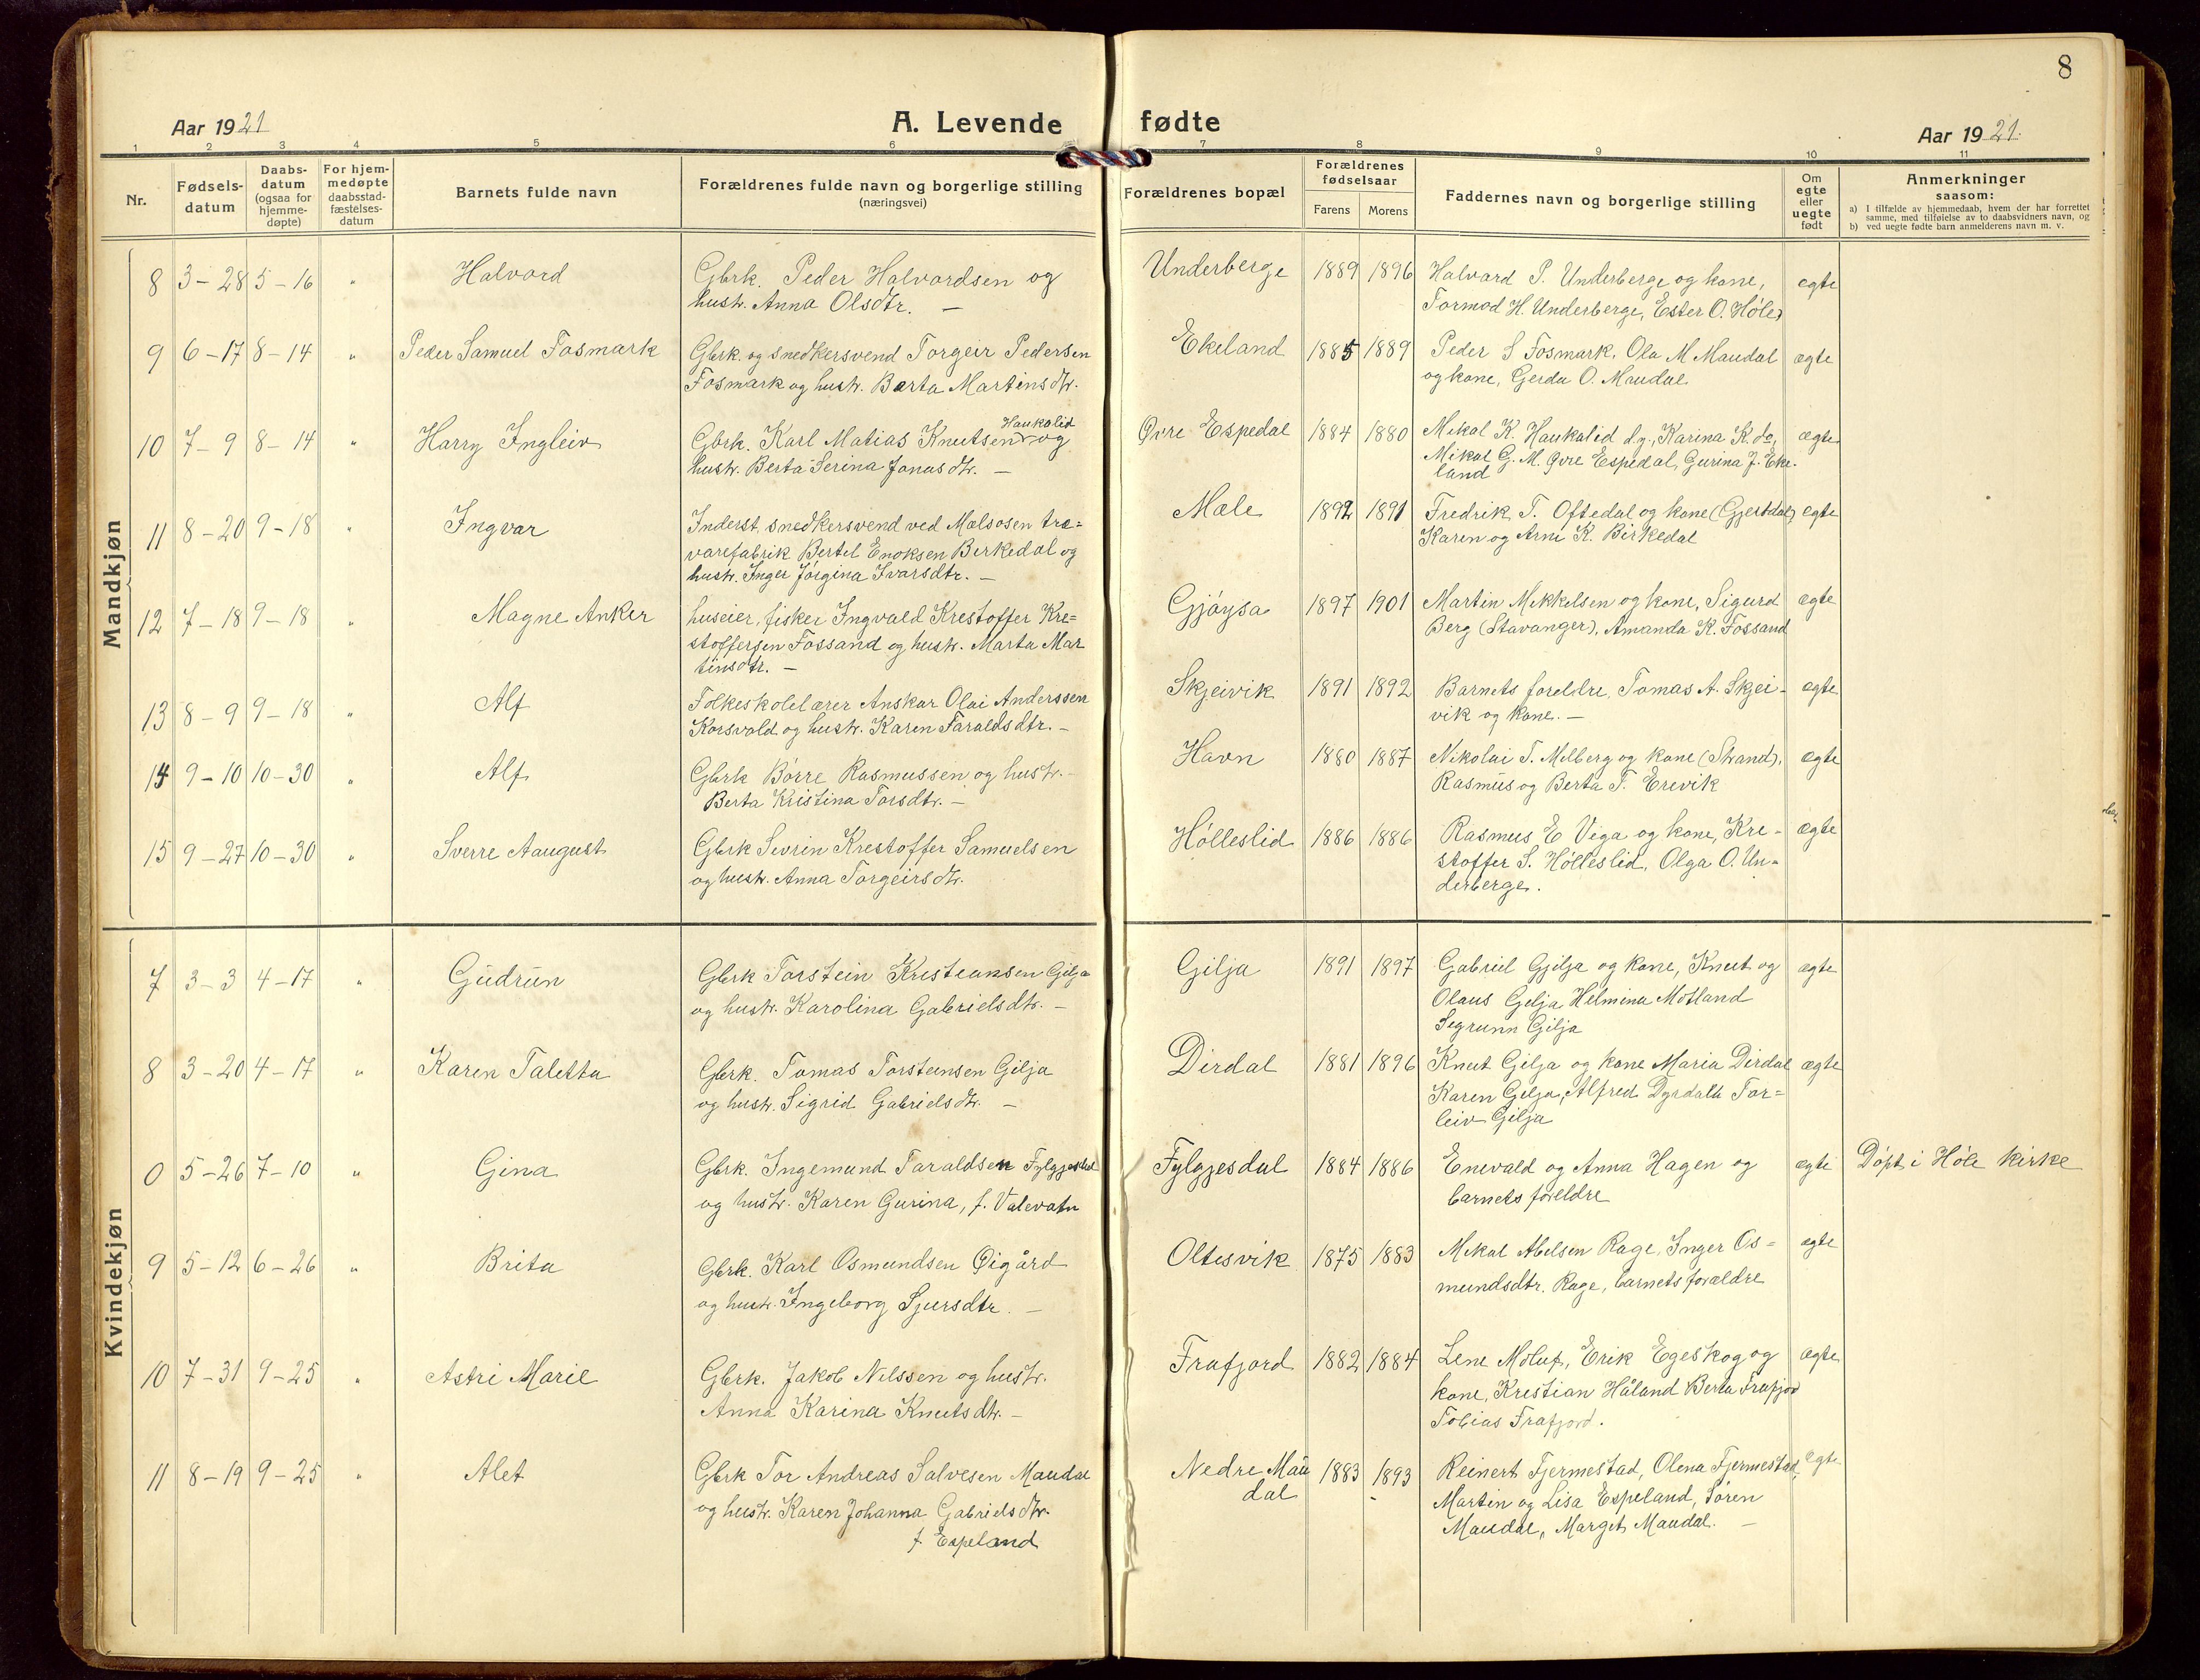 8
Aar 1921
A. Levende fødte
Aar 1921.
1 2 3 4 5 6 7 8 9 10 11
Nr.
Fødsels-
datum
Daabs-
datum
(ogsaa for
hjemme-
døpte)
For hjem-
medøpte
daabsstad-
fæstelses-
datum
Barnets fulde navn
Forældrenes fulde navn og borgerlige stilling
(næringsvei)
Forældrenes bopæl
Forældrenes
fødselsaar
Farens Morens
Faddernes navn og borgerlige stilling
Om
egte
eller
uegte
født
Anmerkninger
saasom:
a) I tilfælde av hjemmedaab, hvem der har forrettet
samme, med tilføielse av to daabsvidners navn, og
b) ved uegte fødte barn anmelderens navn m. v.
Mandkjøn
8 3-28 5-16 " Halvord
Gbrk. Peder Halvordsen og
hustr. Anna Olsdtr. —
Underberge 1889 1896
Halvard P. Underberge og kone,
Tormod H. Underberge, Ester O. Høle
ægte
9 6-17 8-14 " Peder Samuel Fosmark
Gbrk. og snedkersvend Torgeir Pedersen
Fosmark og hustr. Berta Martinsdtr.
Ekeland 1885 1889
Peder S Fosmark, Ola M Maudal
og kone, Gerda O. Maudal
ægte
10 7-9 8-14 " Harry Ingleiv
Haukalid
Gbrk. Karl Matias Knutsen og
hustr. Berta Serina Jonasdtr. —
Øvre Espedal 1884 1880
Mikal K. Haukalid d.y., Karina K. do,
Mikal G. M. Øvre Espedal, Gurina J. Eke-
land
ægte
11 8-20 9-18 " Ingvar
Inderst, snedkersvend ved Mælsosen træ-
varefabrik Bertel Enoksen Birkedal og
hustr. Inger Jørgina Ivarsdtr. —
Mæle 1892 1891
Fredrik T. Oftedal og kone (Gjesdal)
Karen og Arne K. Birkedal
ægte
12 7-18 9-18 " Magne Anker
huseier, fisker Ingvald Krestoffer Kre-
stoffersen Fossand og hustr. Marta Mar
tinsdtr. —
Gjøysa 1897 1901
Martin Mikkelsen og kone, Sigurd
Berg (Stavanger), Amanda K. Fossand
ægte
13 8-9 9-18 " Alf
Folkeskolelærer Anskar Olai Anderssen
Korsvold og hustr. Karen Taraldsdtr. —
Skjeivik 1891 1892
Barnets foreldre, Tomas A. Skjei-
vik og kone. —
ægte
14 9-10 10-30 " Alf
Gbrk Børre Rasmussen og hustr. —
Berta Kristina Torsdtr. —
Havn 1880 1887
Nikolai T. Melberg og kone (Strand),
Rasmus og Berta T. Erevik
ægte
15 9-27 10-30 " Sverre Aaugust
Gbrk Sevrin Krestoffer Samuelsen
og hustr. Anna Torgeirsdtr.
Hølleslid 1886 1886
Rasmus E Viga og kone, Kre-
stoffer S. Hølleslid, Olga O. Un-
derberge.
ægte
Kvindekjøn
7 3-3 4-17 " Gudrun
Gbrk Torstein Kristiansen Gilja
og hustr. Karolina Gabrielsdtr. —
Gilja 1891 1897
Gabriel Gjilja og kone, Knut og
Olaus Gilja Helmina Motland
Segrunn Gilja
ægte
8 3-20 4-17 " Karen Taletta
Gbrk. Tomas Torsteinsen Gilja
og hustr. Sigrid Gabrielsdtr. —
Dirdal 1881 1896
Knut Gilja og kone Maria Dirdal
Karen Gilja, Alfred Dyrdals Tor-
leiv Gilja
ægte
0 5-26 7-10 " Gina
Gbrk. Ingemund Taraldsen Fylgjesdal
og hustr. Karen Gurina, f. Valevatn
Fylgjesdal 1884 1886
Enevald og Anna Hagen og
barnets foreldre
ægte
Døpt i Høle kirke
9 5-12 6-26 " Brita
Gbrk. Karl Osmundsen Øigård
og hustr. Ingeborg Sjursdtr. —
Oltesvik 1875 1883
Mikal Abelsen Rage, Inger Os-
mundsdtr. Rage, barnets forældre
ægte
10 7-31 9-25 " Astri Marie
Gbrk. Jakob Nilssen og hustr.
Anna Karina Knutsdtr. —
Frafjord 1882 1884
Lene Moluf, Erik Egeskog og
kone, Kristian Håland Berta Frafjor
Tobias Frafjord.
ægte
11 8-19 9-25 " Alet
Gbrk Tor Andreas Salvesen Maudal
og hustr. Karen Johanna Gabrielsdtr.
f. Espeland
Nedre Mau
dal
1883 1893
Reinert Fjermestad, Olena Fjermestad,
Martin og Lisa Espeland, Søren
Maudal, Margit Maudal. —
ægte